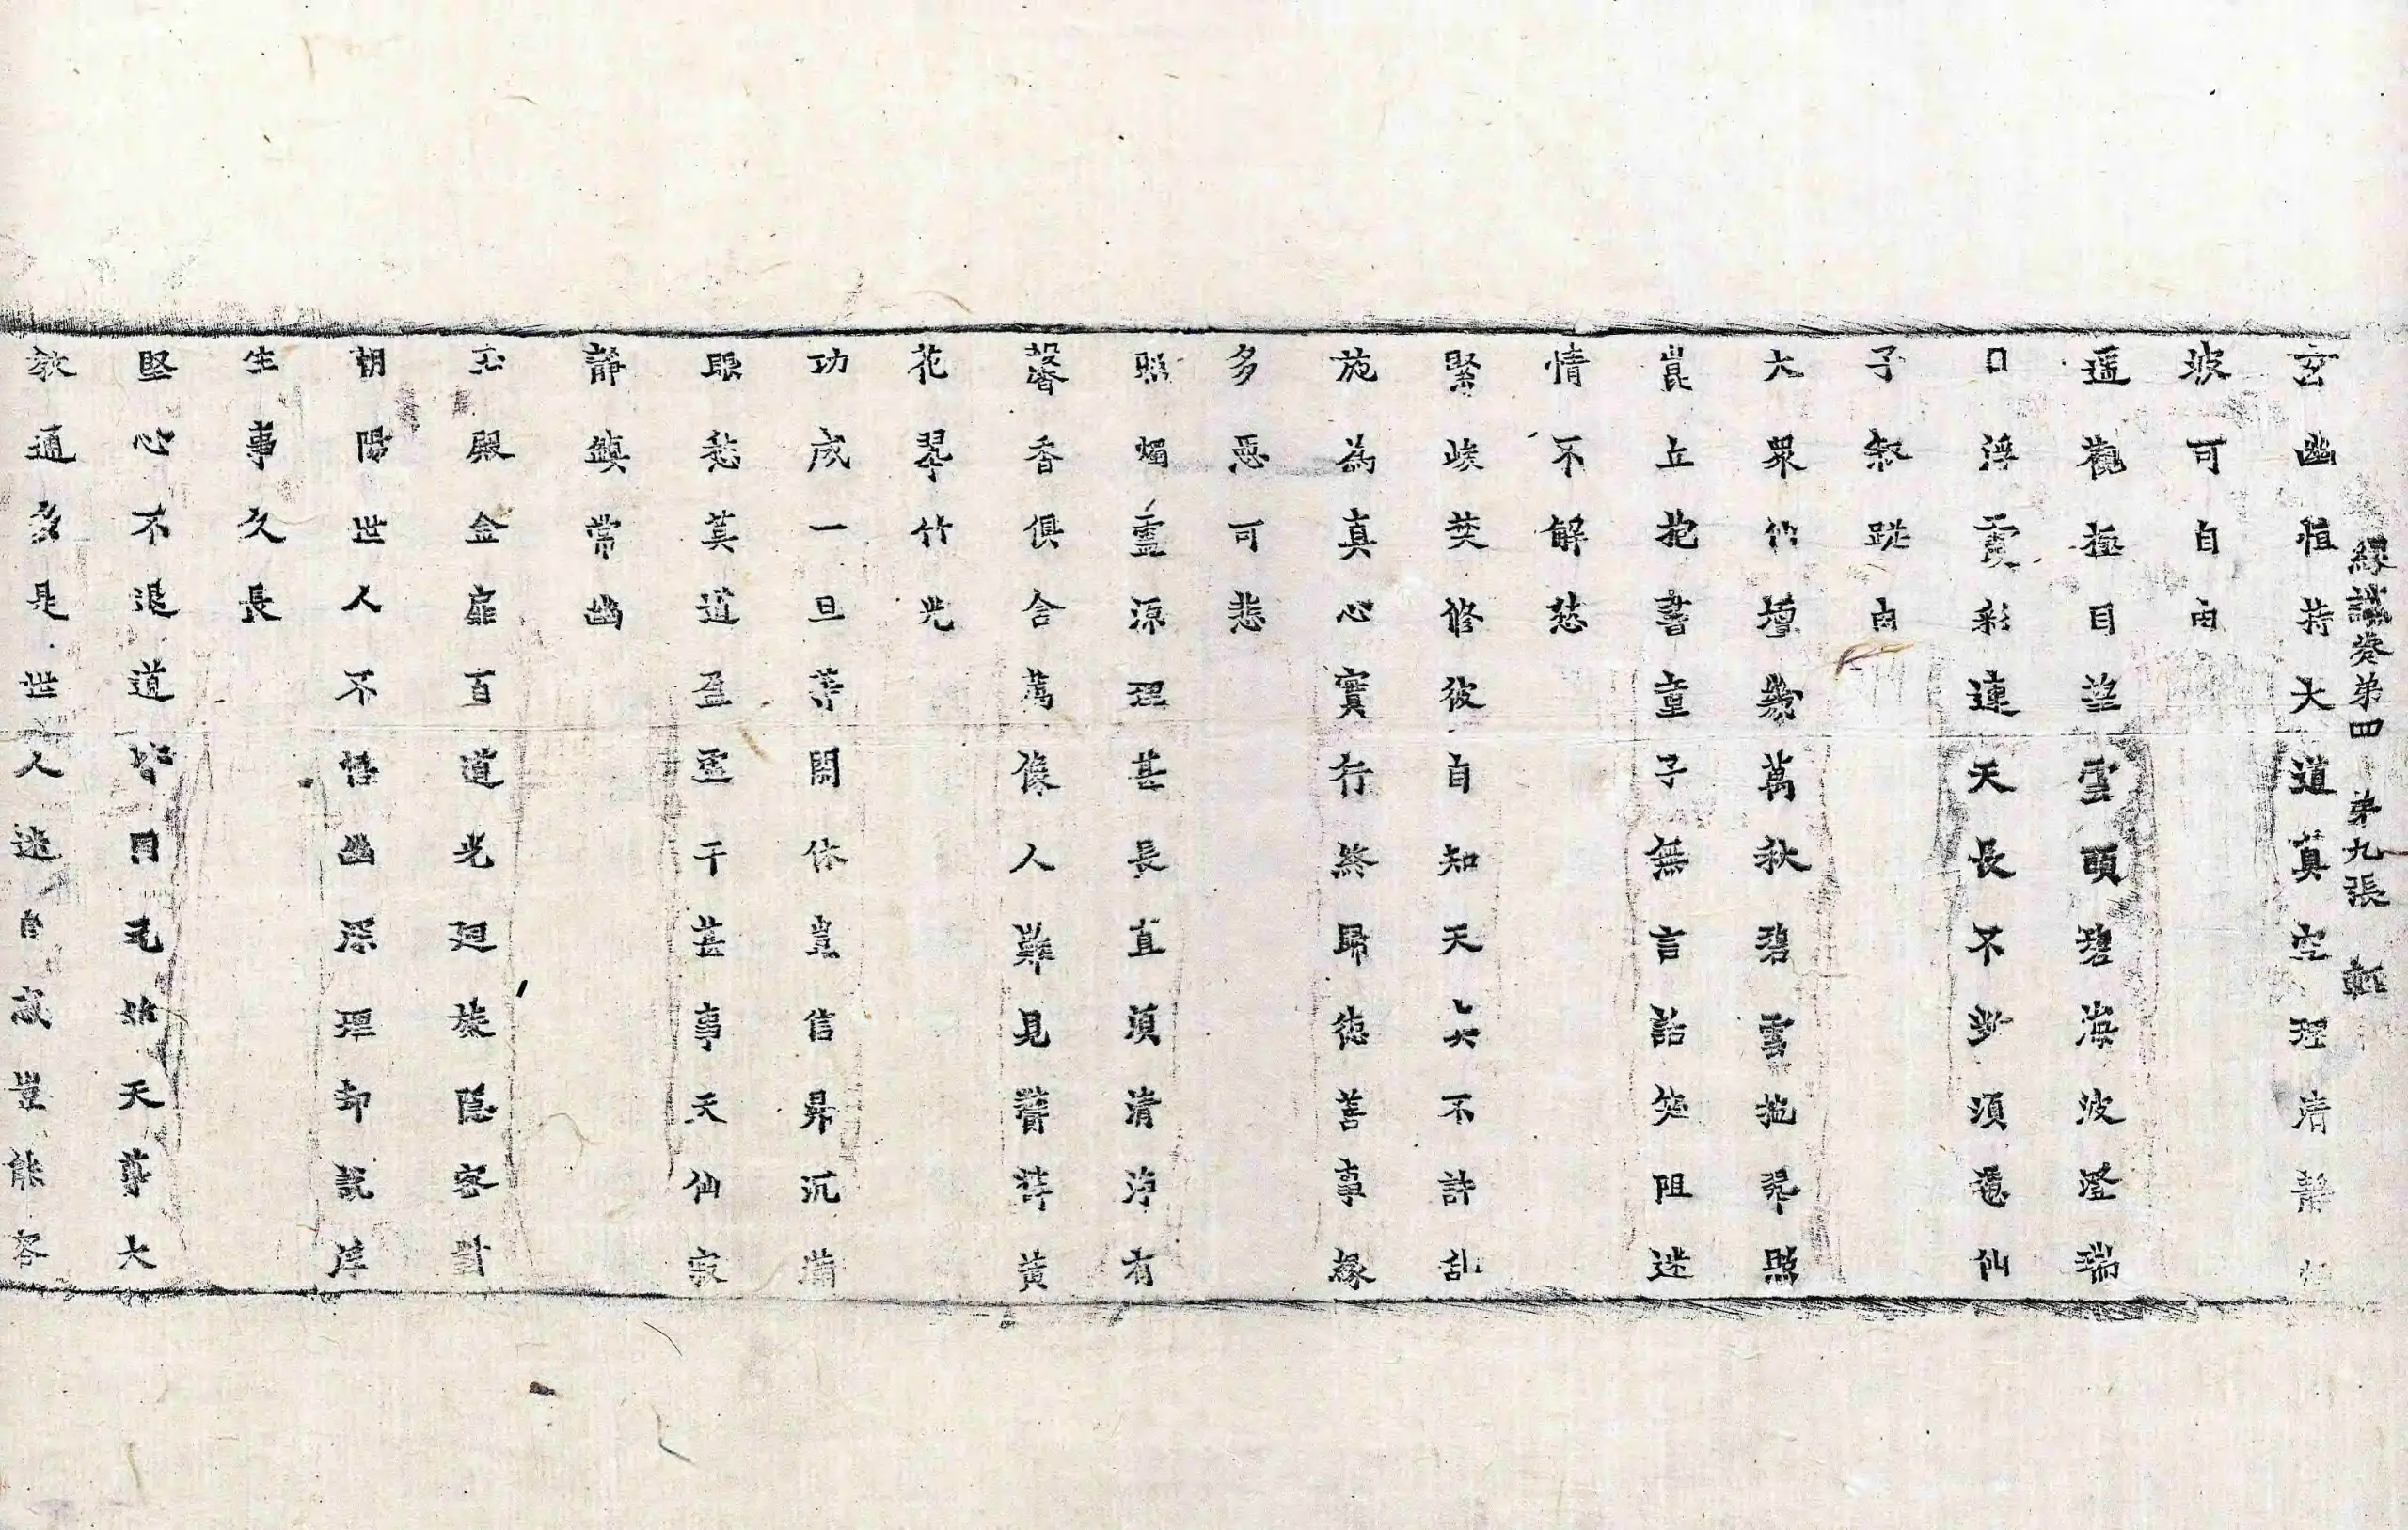 緣識卷第四 第九張
玄幽恒持大道真空理清靜
波可自由
遥觀極目望雲頭碧海波澄瑞
日浮霞彩連天長不斷須還仙
子紋蹤由
大眾仙壇幾萬秋碧雲地翠照
崑丘抱書童子無言語笑阻迷
情不解愁
緊峻焚修彼自知天真不許乱
施為真心實行終歸德善事緣
多惡可悲
照燭靈源理甚長直須清淨有
馨香俱含萬像人難見誓詩黃
花翠竹光
功成一旦等閑休豈信昇沉滿
眼愁莫道盈虛干甚事天仙寂
靜鎮常幽
玉殿金扉百道光迴旋隱密對
朝陽世人不悟幽深理却說浮
生事久長
堅心不退道 同 始天尊大
教通多是世人迷自 豈能容